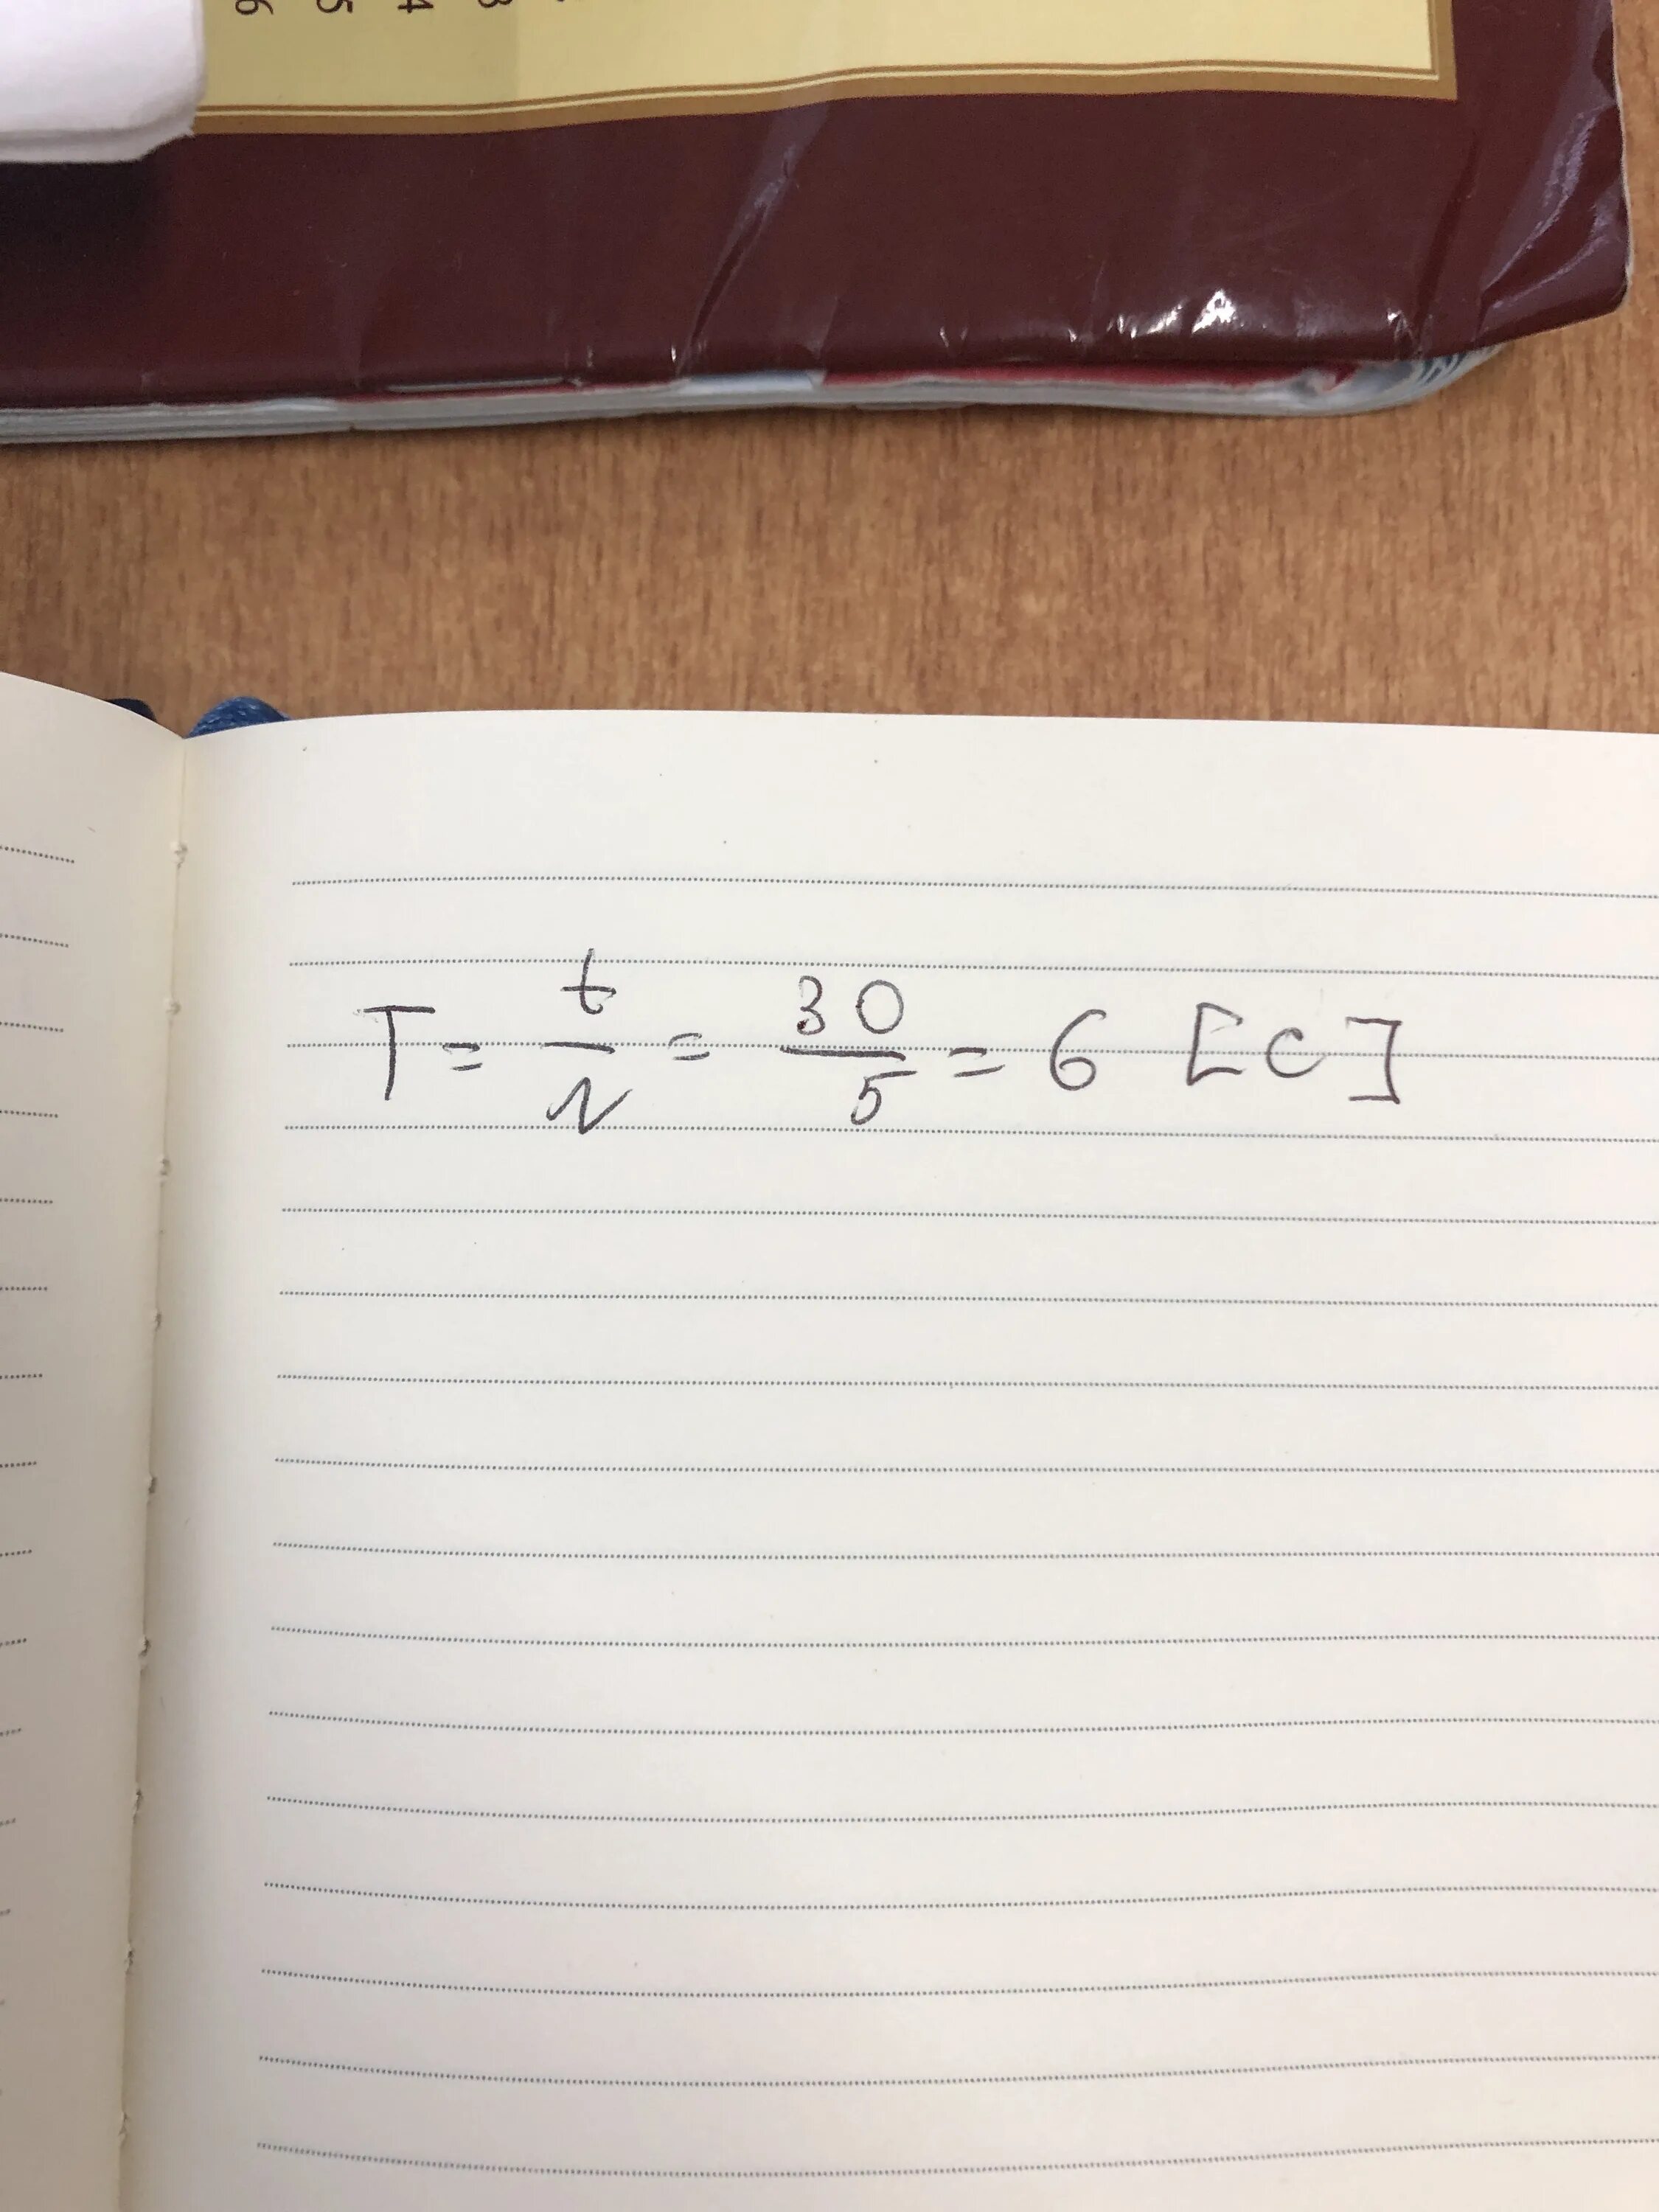 6 5 4 3
T = t/N = 30/5 = 6 [c]